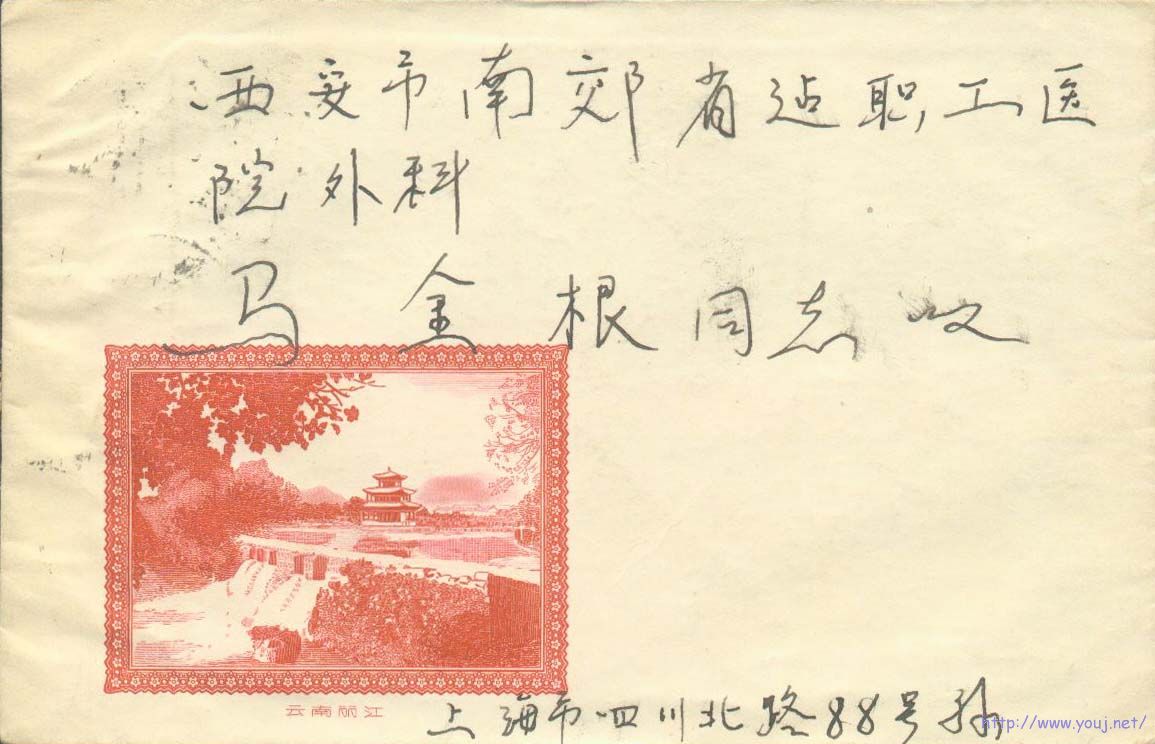 西安市南郊省迠职工医
院外科
马金根同志收
云南丽江
上海市四川北路88号孙
http://www.youj.net/